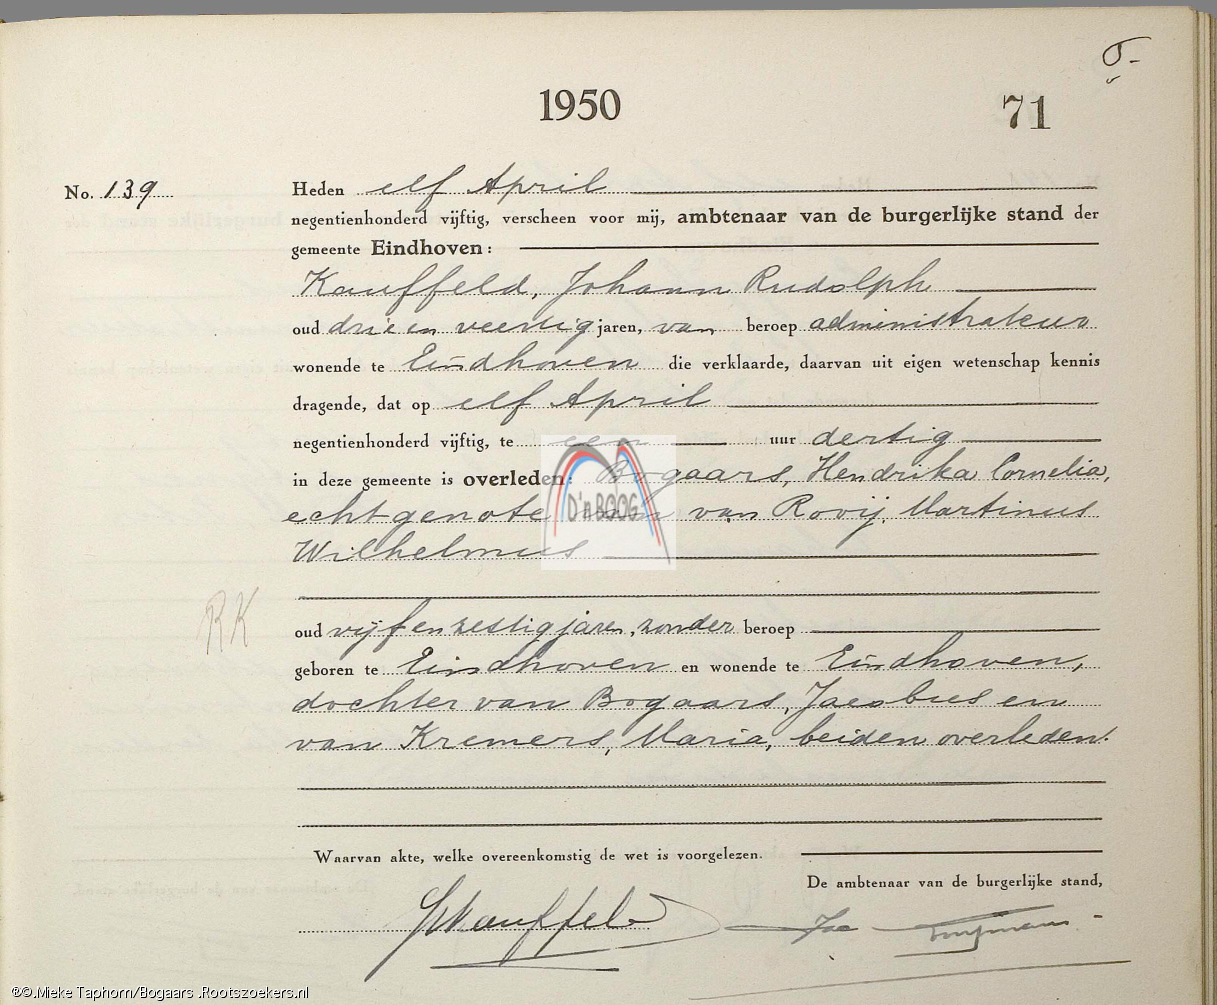 1950
71
No. 139
Heden elf April
negentienhonderd vijftig, verscheen voor mij, ambtenaar van de burgerlijke stand der
gemeente Eindhoven:
Kauffeld, Johann Rudolph
oud drie en veertig jaren, van beroep administrateur
wonende te Eindhoven die verklaarde, daarvan uit eigen wetenschap kennis
dragende, dat op elf April
negentienhonderd vijftig, te een uur dertig
in deze gemeente is overleden: Bogaars, Hendrika Cornelia,
echtgenote van van Rooij, Martinus
Wilhelmus
RK
oud vijf en zestig jaren, zonder beroep
geboren te Eindhoven en wonende te Eindhoven,
dochter van Bogaars, Jacobus en
van Kremers, Maria, beiden overleden.
Waarvan akte, welke overeenkomstig de wet is voorgelezen.
De ambtenaar van de burgerlijke stand,
Kauffeld
D'n BOOG
©Mieke Taphorn/Bogaars .Rootszoekers.nl